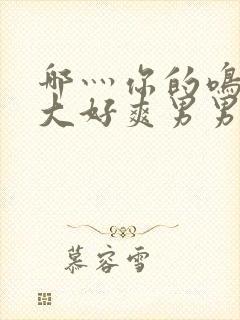 哪灬你的鳴
大好爽男男
慕容雪